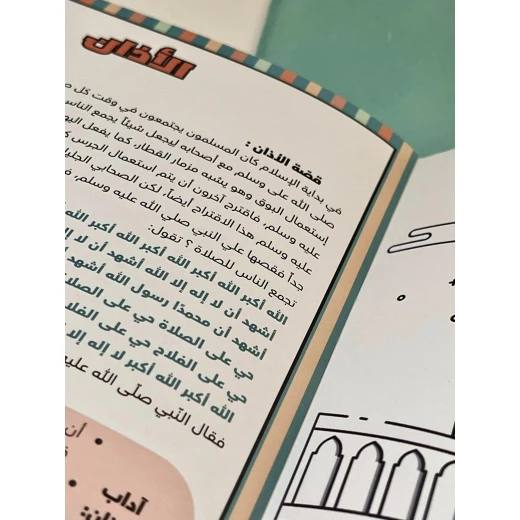 الأذان
قصة الأذان :
في بداية الإسلام كان المسلمون يجتمعون في وقت كل
صلى الله على وسلم مع أصحابه ليجعل شيئاً يجمع الناس
إستعمال البوق وهو يشبه مزمار القطار، كما يفعل اليهود
عليه وسلم، فاقترح آخرون أن يتم استعمال الجرس
عليه وسلم هذا الاقتراح أيضاً، لكن الصحابي الجليل
جداً فقصها على النبي صلي الله عليه وسلم،
تجمع الناس للصلاة ؟ تقول:
الله أكبر الله أكبر الله أكبر الله أكبر
أشهد أن لا إله إلا الله أشهد أن لا
أشهد أن محمدًا رسول الله أشهد
حي على الصلاة حي على الصلا
حي على الفلاح حي على الفلا
الله أكبر الله أكبر لا إله إلا
فقال النّبي صلّى الله عليه
أن
آداب